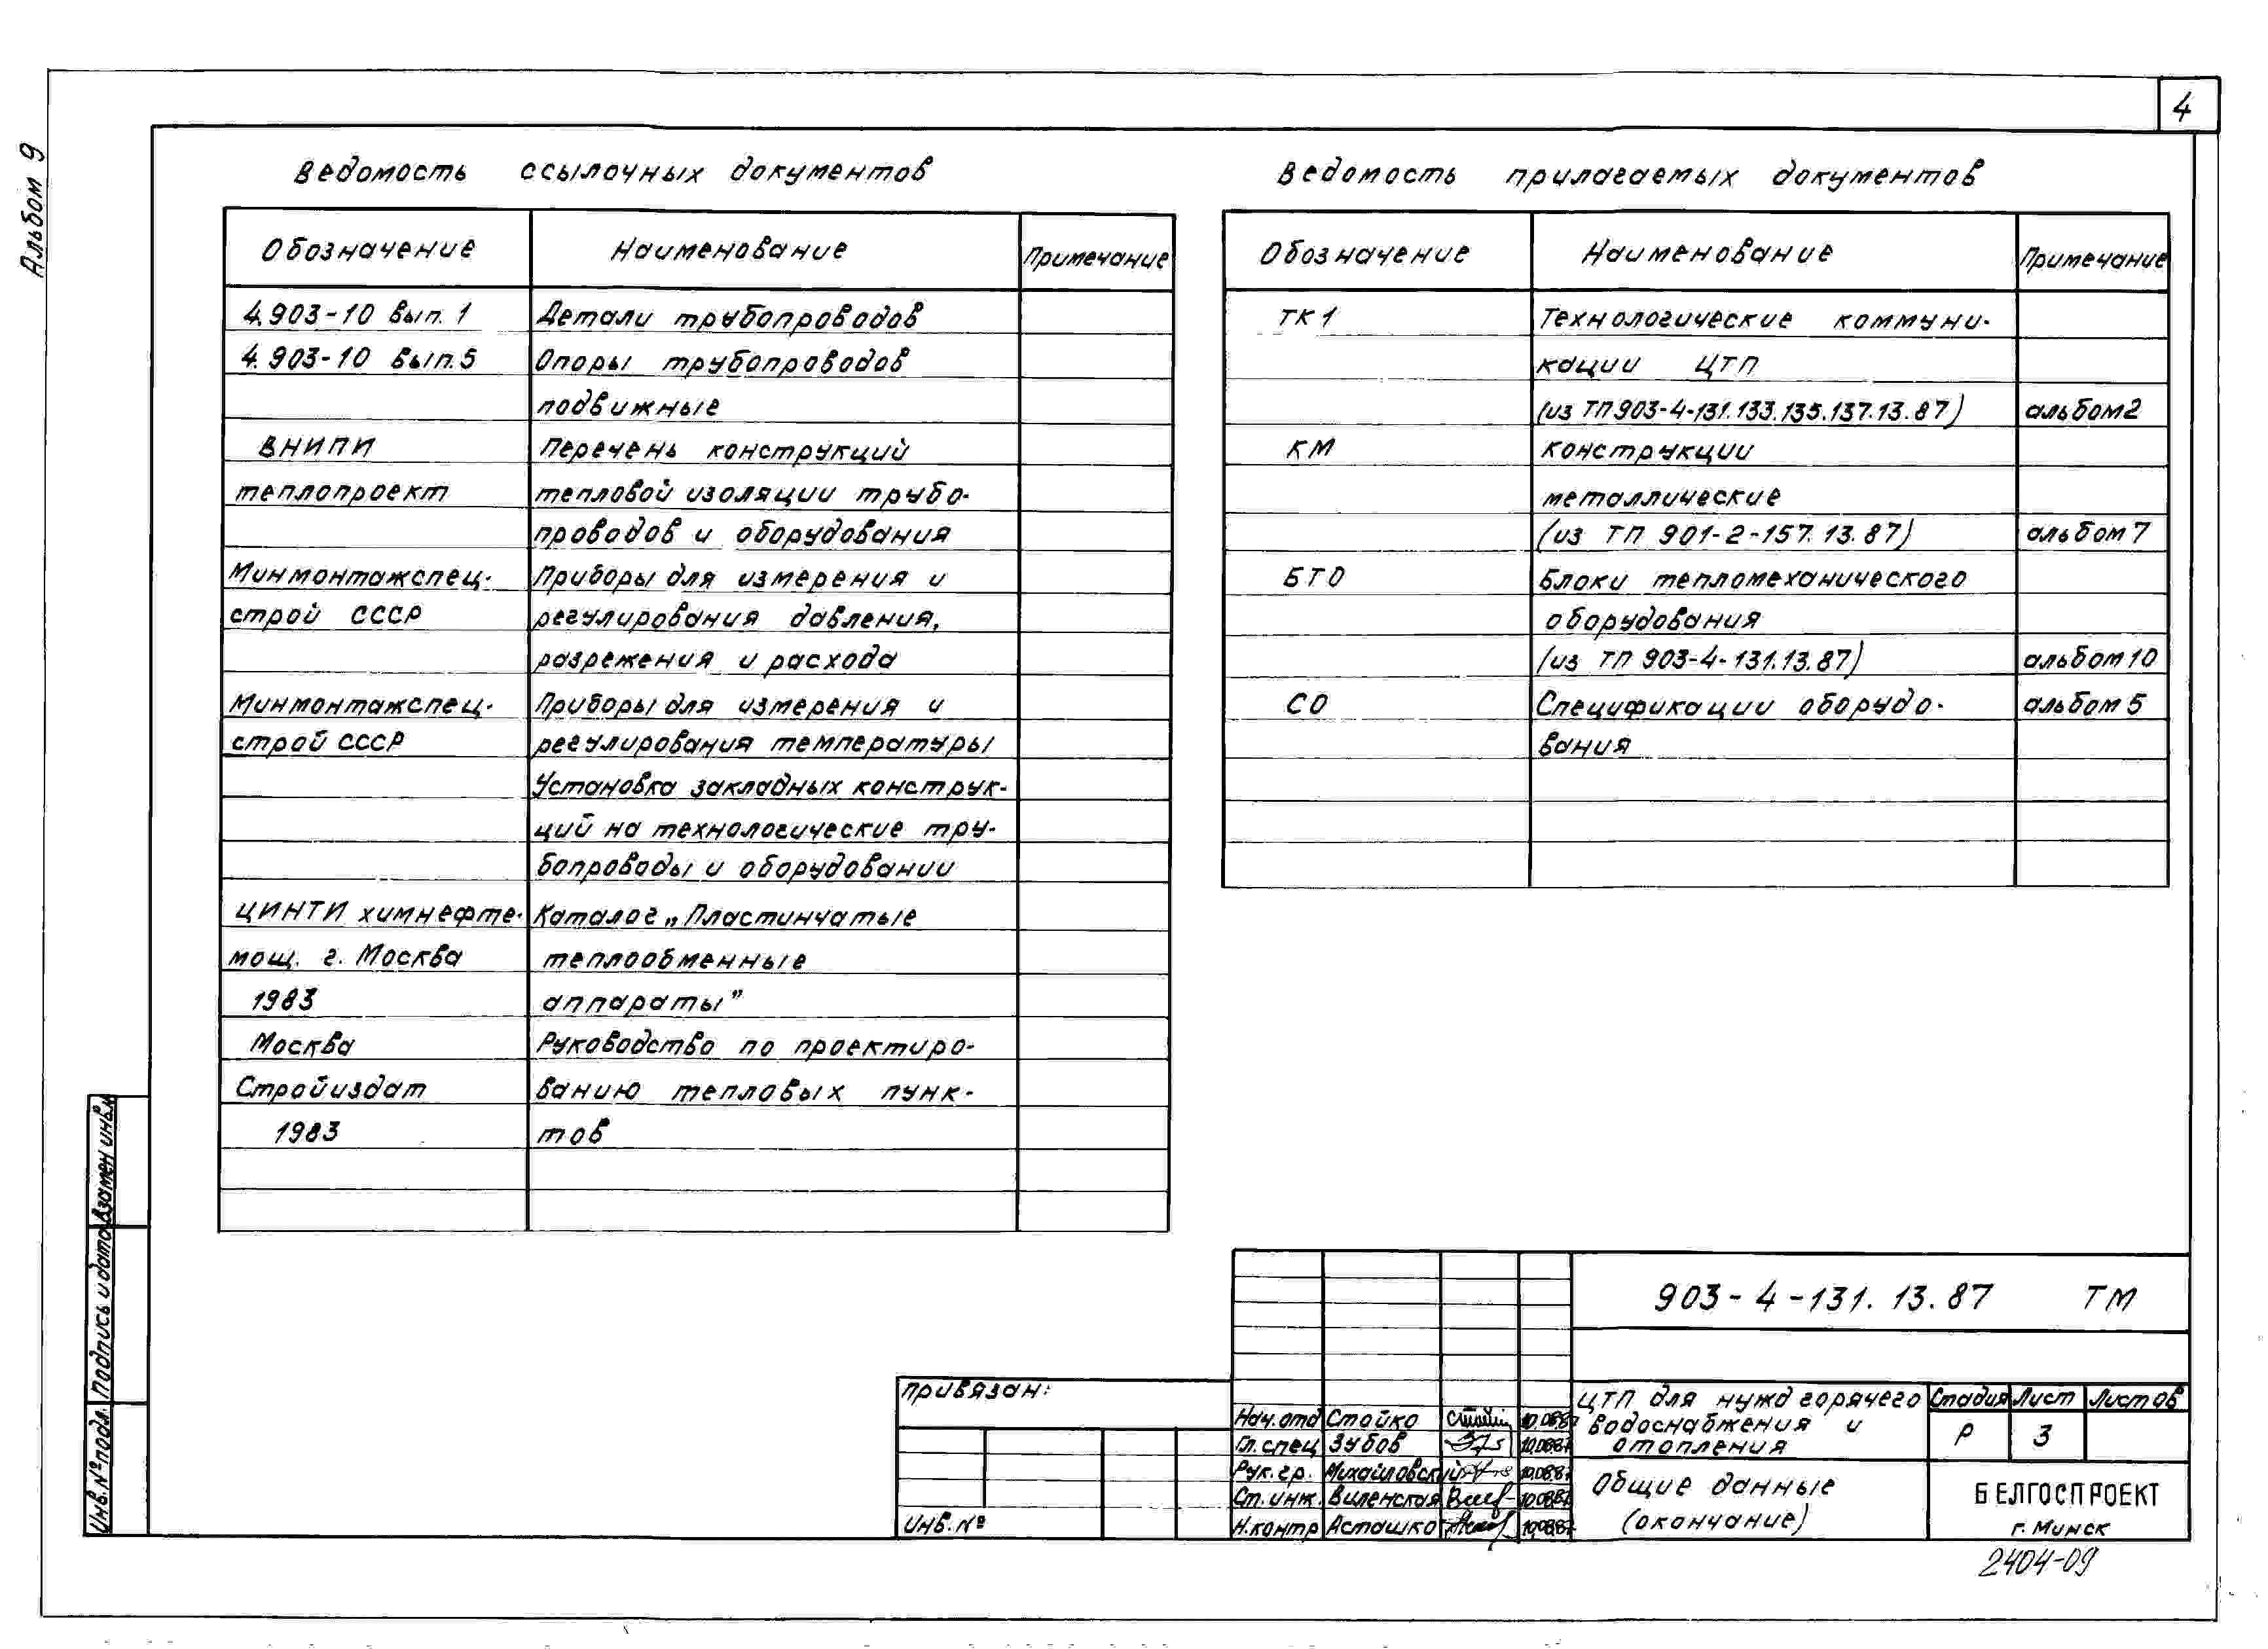 4
Альбом 9
Ведомость ссылочных документов
Обозначение Наименование Примечание
4.903-10 вып. 1 Детали трубопроводов
4.903-10 вып. 5 Опоры трубопроводов
подвижные
ВНИПИ Перечень конструкций
теплопроект тепловой изоляции трубо-
проводов и оборудования
Минмонтажспец- Приборы для измерения и
строй СССР регулирования давления,
разрежения и расхода
Минмонтажспец- Приборы для измерения и
строй СССР регулирования температуры
Установка закладных конструк-
ций на технологические тру-
бопроводы и оборудовании
ЦИНТИ химнефте- Каталог „Пластинчатые
мощ. г. Москва теплообменные
1983 аппараты"
Москва Руководство по проектиро-
Стройиздат ванию тепловых пунк-
1983 тов
Ведомость прилагаемых документов
Обозначение Наименование Примечание
ТК1 Технологические коммуни-
кации ЦТП
(из ТП 903-4-131.133.135.137.13.87) альбом 2
КМ Конструкции
металлические
(из ТП 901-2-157.13.87) альбом 7
БТО Блоки тепломеханического
оборудования
(из ТП 903-4-131.13.87) альбом 10
СО Спецификации оборудо- альбом 5
вания
Взамен инв.№
Подпись и дата
Инв.№подл.
Привязан:
Инв.№
903-4-131.13.87 ТМ
Нач.отд Стойко 10.08.87
Гл.спец Зубов 10.08.87
Рук.гр. Михайловский 10.08.87
Ст.инж. Виленская 10.08.87
Н.контр Асташко 10.08.87
ЦТП для нужд горячего
водоснабжения и
отопления
Стадия Лист Листов
Р 3
Общие данные
(окончание)
БЕЛГОСПРОЕКТ
г. Минск
2404-09